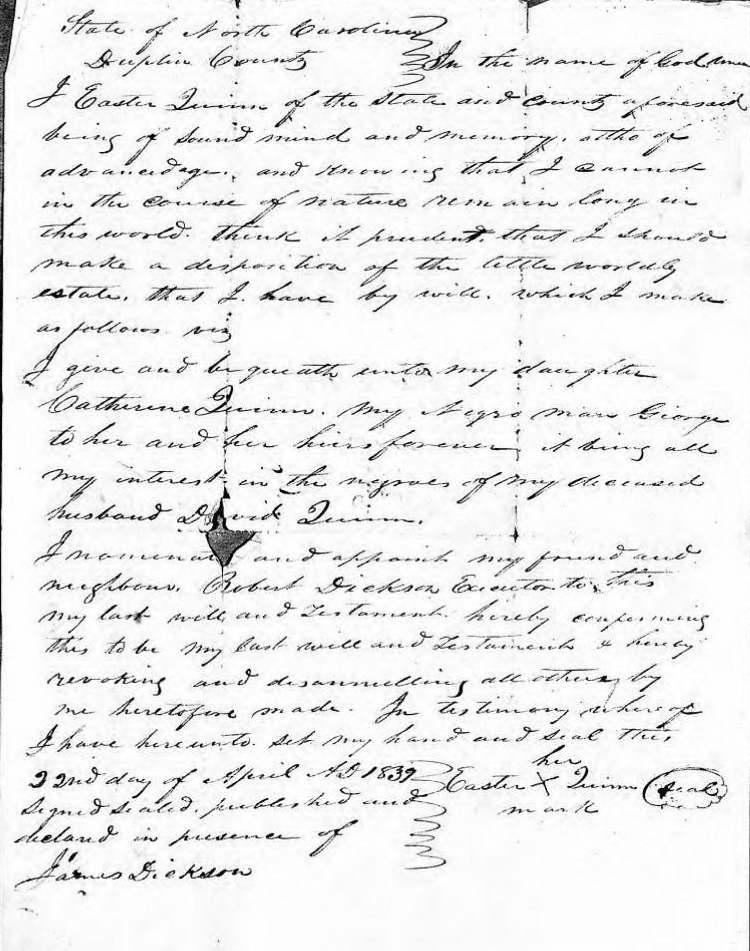 State of North Carolina
Duplin County In the name of God Amen
I Easter Quinn of the State and County aforesaid
being of sound mind and memory. altho of
advanced age, and knowing that I cannot
in the course of nature remain long in
this world. think it prudent, that I should
make a disposition of the little worldly
estate, that I have by will. which I make
as follows viz
I give and bequeath unto my daughter
Catherine Quinn. my Negro man George
to her and her heirs forever it being all
my interest in the negroes of my deceased
husband David Quinn.
I nominate and appoint my friend and
neighbour. Robert Dickson Executor to this
my last will and Testament hereby confirming
this to be my last will and Testament & hereby
revoking and disannulling all others by
me heretofore made. In testimony whereof
I have hereunto set my hand and seal this
22nd day of April AD 1839
her
Easter X Quinn seal
mark
Signed sealed. published and
declared in presence of
James Dickson